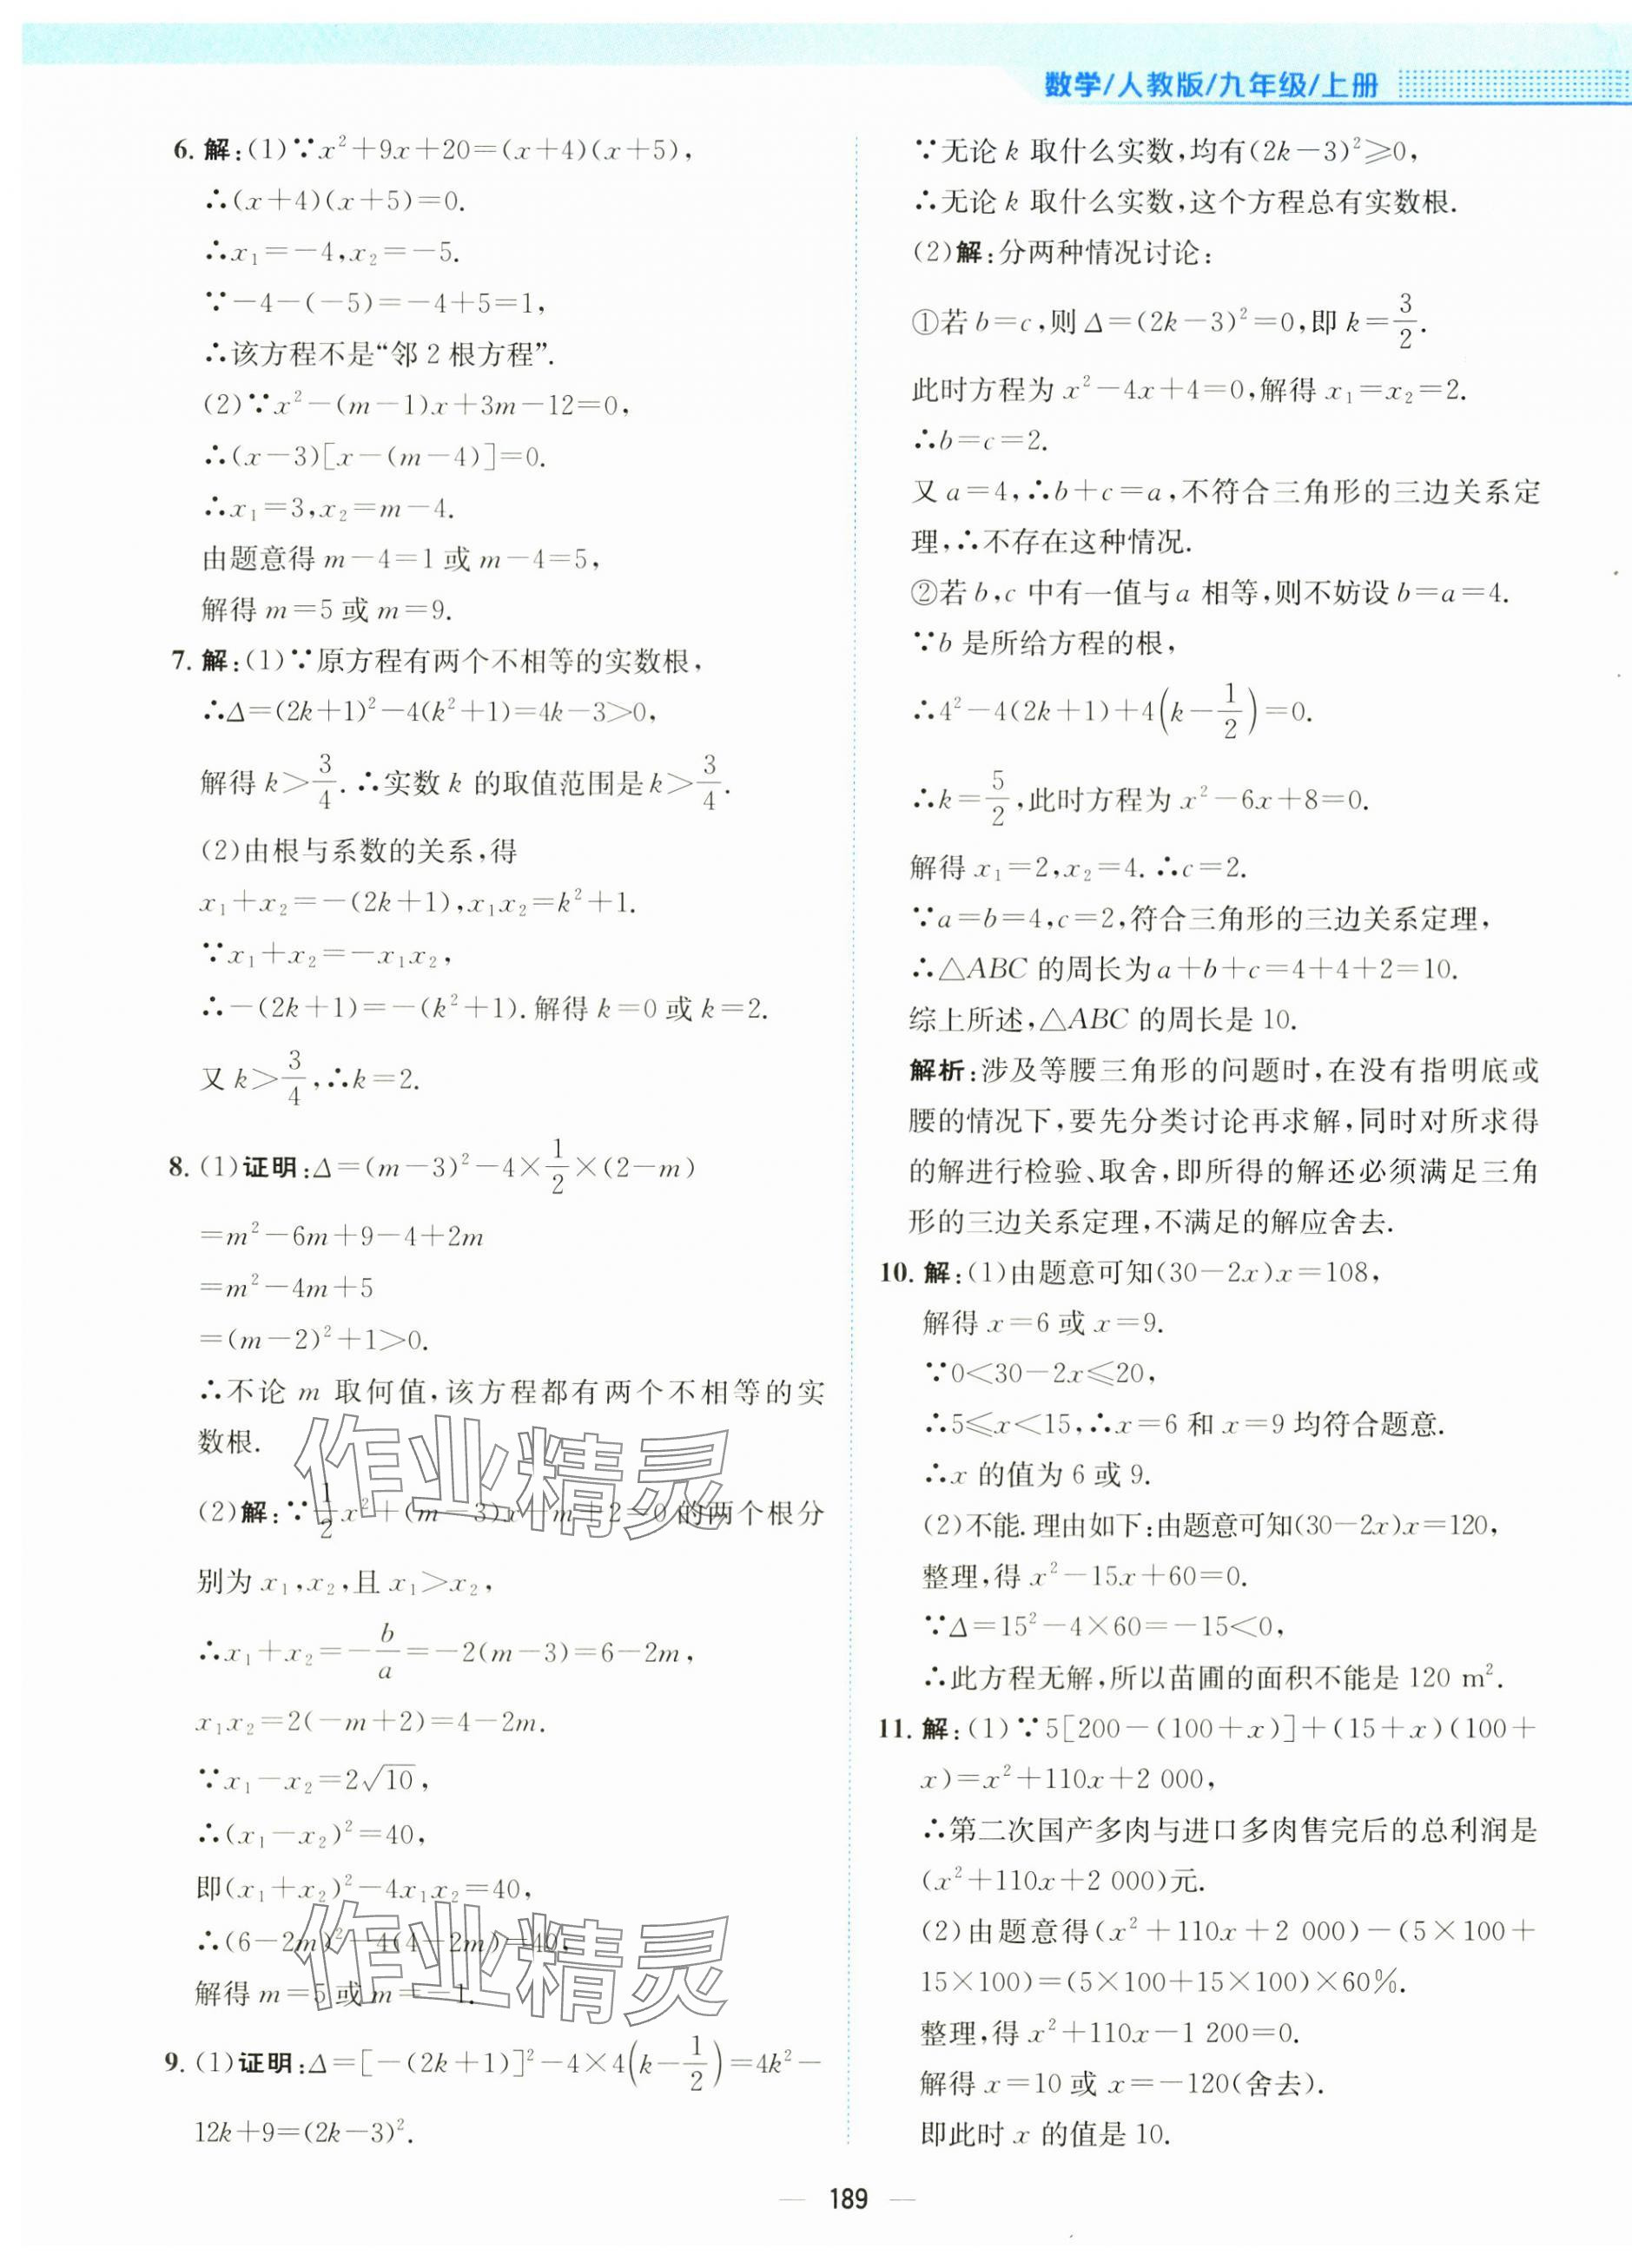 数学/人教版/九年级/上册
6. 解:(1)∵x²+9x+20=(x+4)(x+5),
∴(x+4)(x+5)=0.
∴x₁=-4,x₂=-5.
∵-4-(-5)=-4+5=1,
∴该方程不是“邻2根方程”.
(2)∵x²-(m-1)x+3m-12=0,
∴(x-3)[x-(m-4)]=0.
∴x₁=3,x₂=m-4.
由题意得m-4=1或m-4=5,
解得m=5或m=9.
7. 解:(1)∵原方程有两个不相等的实数根,
∴Δ=(2k+1)²-4(k²+1)=4k-3>0,
解得k>3/4.∴实数k的取值范围是k>3/4.
(2)由根与系数的关系,得
x₁+x₂=-(2k+1),x₁x₂=k²+1.
∵x₁+x₂=-x₁x₂,
∴-(2k+1)=-(k²+1).解得k=0或k=2.
又k>3/4,∴k=2.
8. (1)证明:Δ=(m-3)²-4×1/2×(2-m)
=m²-6m+9-4+2m
=m²-4m+5
=(m-2)²+1>0.
∴不论m取何值,该方程都有两个不相等的实
数根.
(2)解:∵1/2x²+(m-3)x-m+2=0的两个根分
别为x₁,x₂,且x₁>x₂,
∴x₁+x₂=-b/a=-2(m-3)=6-2m,
x₁x₂=2(-m+2)=4-2m.
∵x₁-x₂=2√10,
∴(x₁-x₂)²=40,
即(x₁+x₂)²-4x₁x₂=40,
∴(6-2m)²-4(4-2m)=40,
解得m=5或m=-1.
9. (1)证明:Δ=[-(2k+1)]²-4×4(k-1/2)=4k²-
12k+9=(2k-3)².
∵无论k取什么实数,均有(2k-3)²≥0,
∴无论k取什么实数,这个方程总有实数根.
(2)解:分两种情况讨论:
①若b=c,则Δ=(2k-3)²=0,即k=3/2.
此时方程为x²-4x+4=0,解得x₁=x₂=2.
∴b=c=2.
又a=4,∴b+c=a,不符合三角形的三边关系定
理,∴不存在这种情况.
②若b,c中有一值与a相等,则不妨设b=a=4.
∵b是所给方程的根,
∴4²-4(2k+1)+4(k-1/2)=0.
∴k=5/2,此时方程为x²-6x+8=0.
解得x₁=2,x₂=4.∴c=2.
∵a=b=4,c=2,符合三角形的三边关系定理,
∴△ABC的周长为a+b+c=4+4+2=10.
综上所述,△ABC的周长是10.
解析:涉及等腰三角形的问题时,在没有指明底或
腰的情况下,要先分类讨论再求解,同时对所求得
的解进行检验、取舍,即所得的解还必须满足三角
形的三边关系定理,不满足的解应舍去.
10. 解:(1)由题意可知(30-2x)x=108,
解得x=6或x=9.
∵0<30-2x≤20,
∴5≤x<15,∴x=6和x=9均符合题意.
∴x的值为6或9.
(2)不能.理由如下:由题意可知(30-2x)x=120,
整理,得x²-15x+60=0.
∵Δ=15²-4×60=-15<0,
∴此方程无解,所以苗圃的面积不能是120 m².
11. 解:(1)∵5[200-(100+x)]+(15+x)(100+
x)=x²+110x+2 000,
∴第二次国产多肉与进口多肉售完后的总利润是
(x²+110x+2 000)元.
(2)由题意得(x²+110x+2 000)-(5×100+
15×100)=(5×100+15×100)×60%.
整理,得x²+110x-1 200=0.
解得x=10或x=-120(舍去).
即此时x的值是10.
作业精灵
作业精灵
189